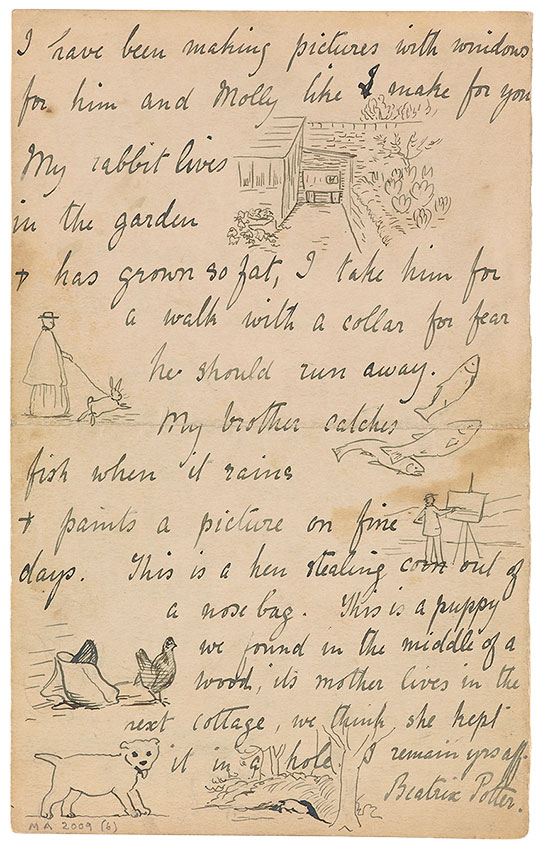 I have been making pictures with windows
for him and Molly like I make for you
My rabbit lives
in the garden
+ has grown so fat, I take him for
a walk with a collar for fear
he should run away.
My brother catches
fish when it rains
+ paints a picture on fine
days. This is a hen stealing corn out of
a nose bag. This is a puppy
we found in the middle of a
wood, it's mother lives in the
next cottage, we think she kept
it in a hole. I remain yrs aff.
Beatrix Potter.
MA 2009 (6)